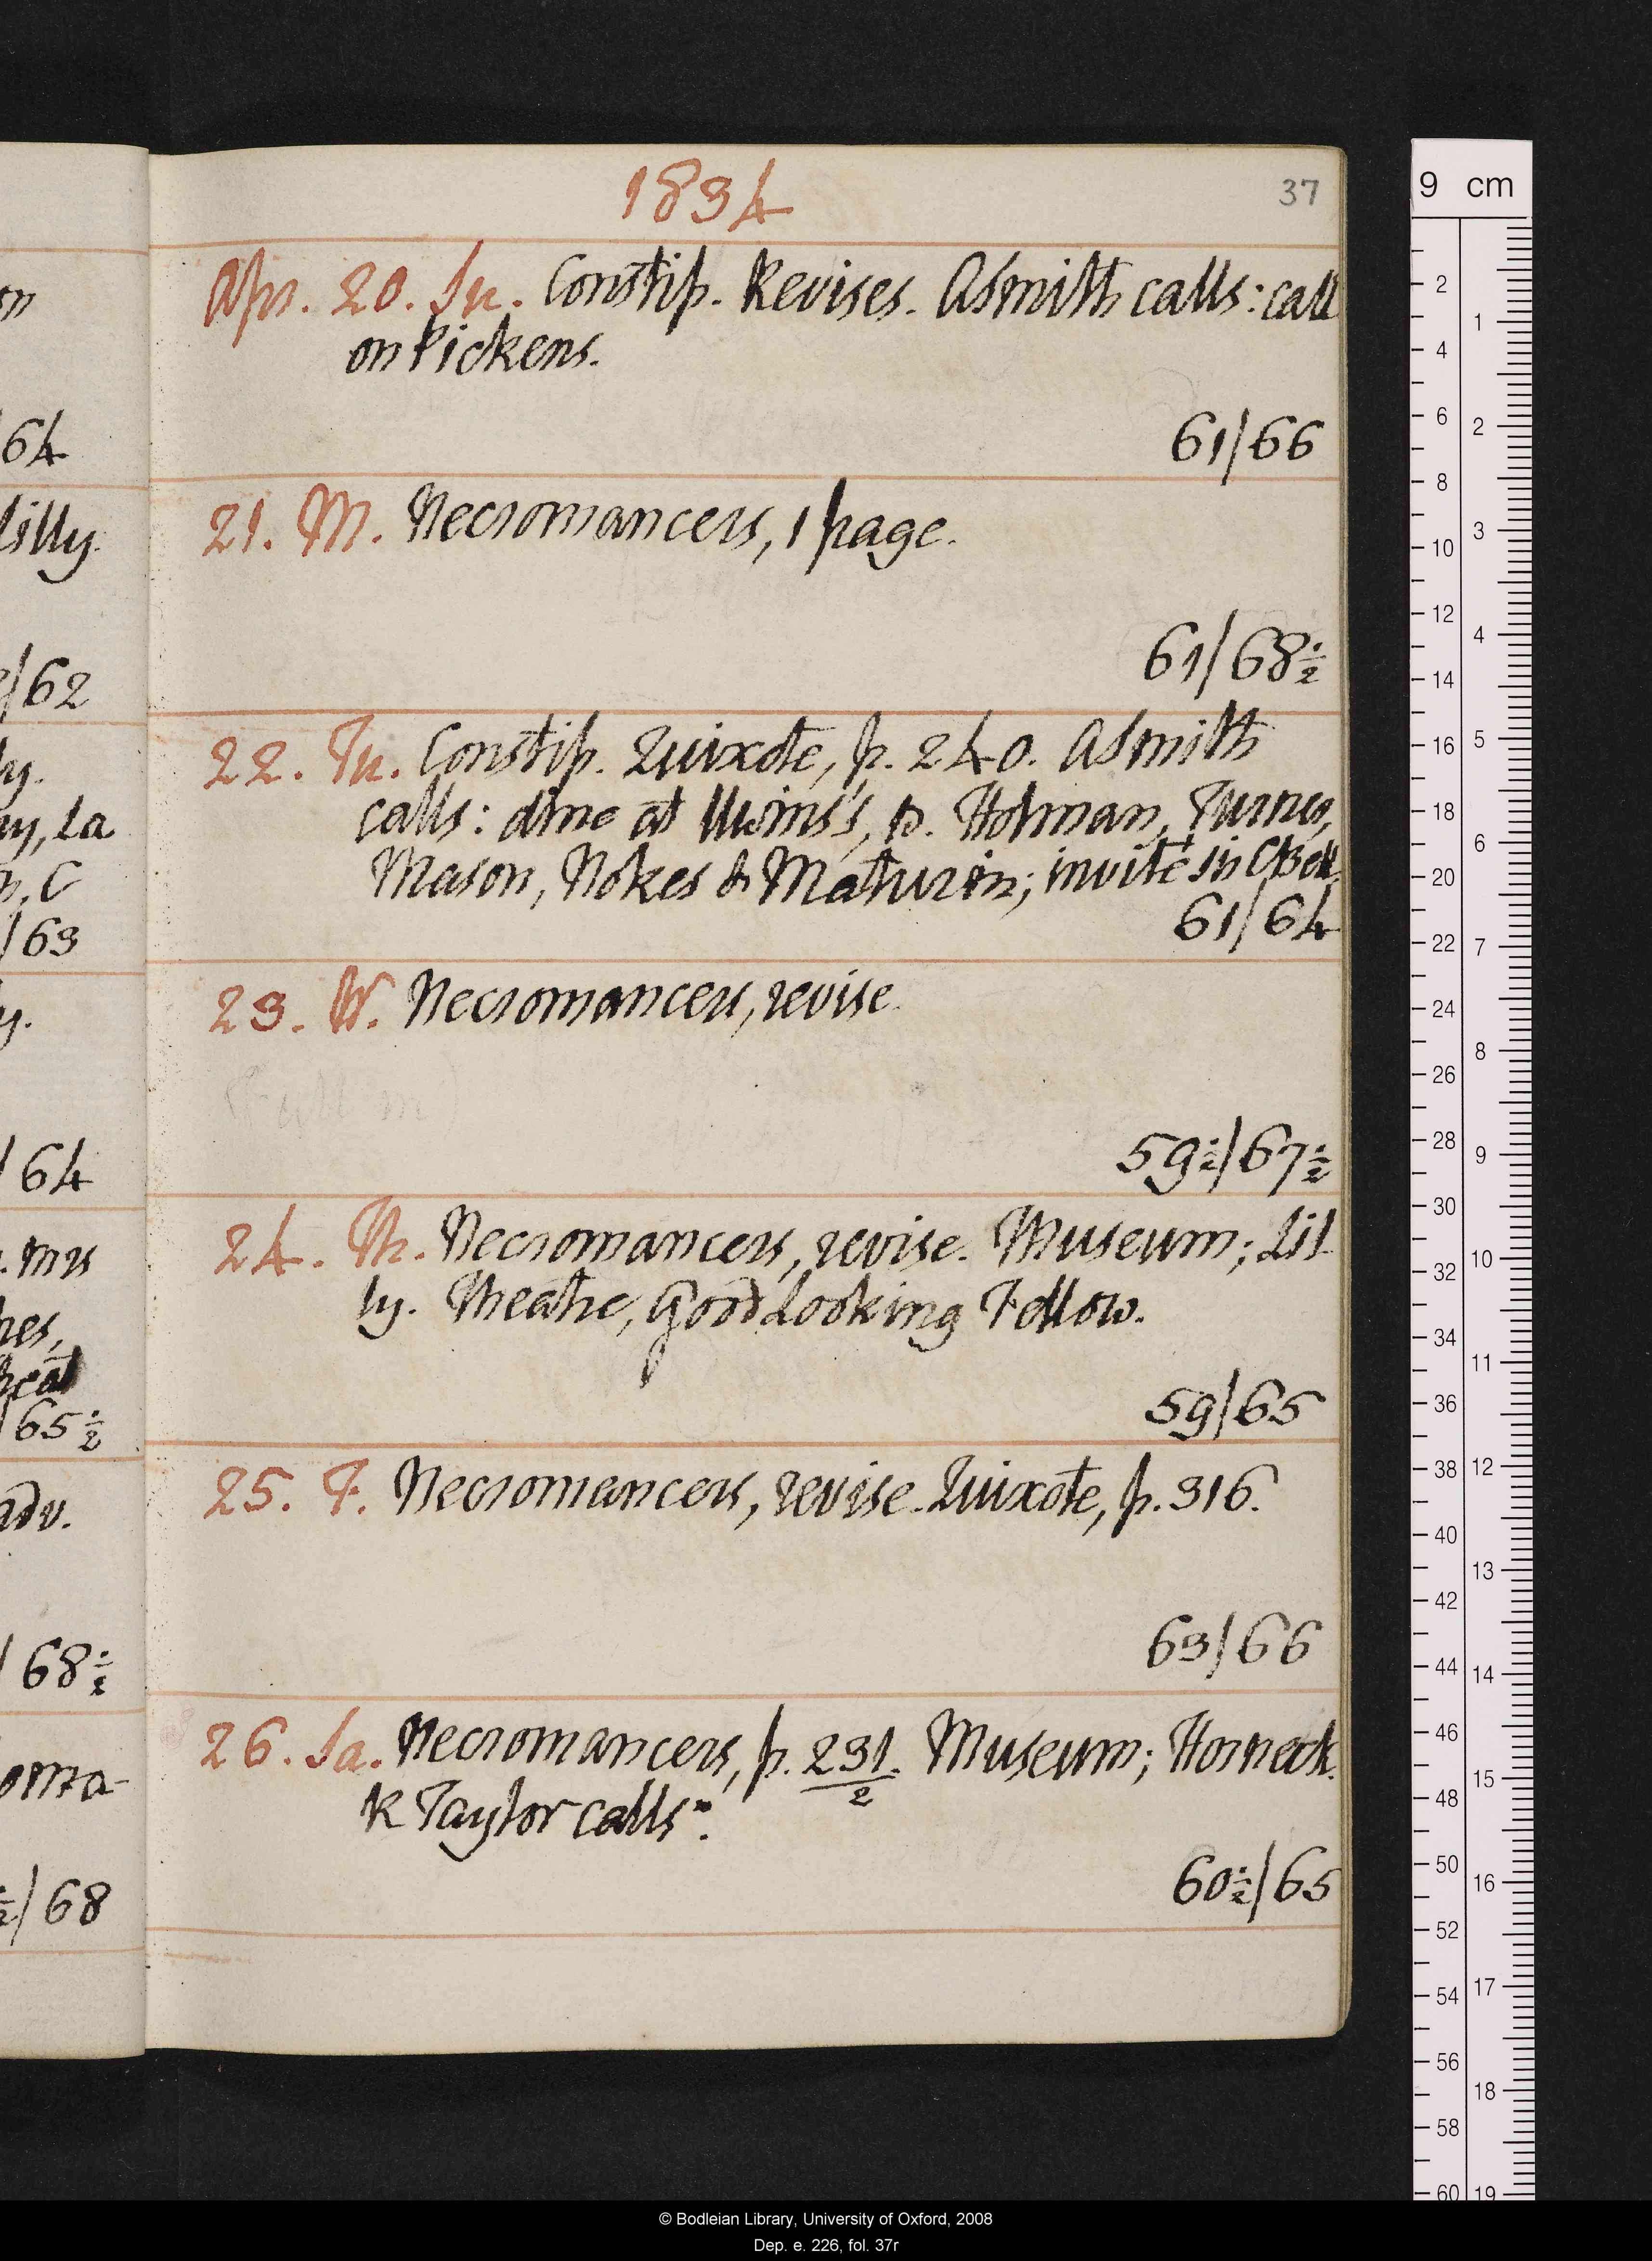 1834
37
Apr. 20. Su. Constip. Revises. ASmith calls: call
on Pickens.
61/66
21. M. Necromancers, 1 page.
61/68½
22. Tu. Constip. Quixote, p. 240. ASmith
calls: dine at Uwins's, w. Holman, Turner,
Mason, Nokes & Maturin; invité Sir CBell
61/64
23. W. Necromancers, revise.
59½/67½
24. Th. Necromancers, revise. Museum; Lil
ly. Theatre, Good Looking Fellow.
59/65
25. F. Necromancers, revise. Quixote, p. 316.
63/66
26. Sa. Necromancers, p. 231/2. Museum; Horneck.
R Taylor calls:
60½/65
on
64
lilly.
/62
ly.
ay, La
n. C
/63
y.
/64
. Mrs
nes,
/65½
adv.
/68½
oma-
½/68
9 cm
2
4
6
8
10
12
14
16
18
20
22
24
26
28
30
32
34
36
38
40
42
44
46
48
50
52
54
56
58
60
1
2
3
4
5
6
7
8
9
10
11
12
13
14
15
16
17
18
19
© Bodleian Library, University of Oxford, 2008
Dep. e. 226, fol. 37r